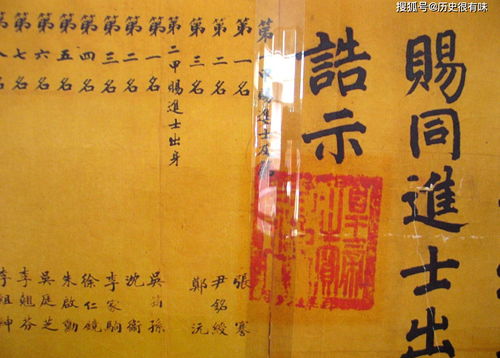 搜狐号@历史很有味
賜同進士出
誥示
皇帝之寶
第一甲賜進士及
第一名 張謇
第二名 尹銘綬
第三名 鄭沅
第二甲賜進士出身
第一名 吳筠孫
第二名 沈衛
第三名 李家駒
第四名 徐仁鏡
第五名 朱啟勳
第六名 吳庭芝
第七名 李翹芬
名 李